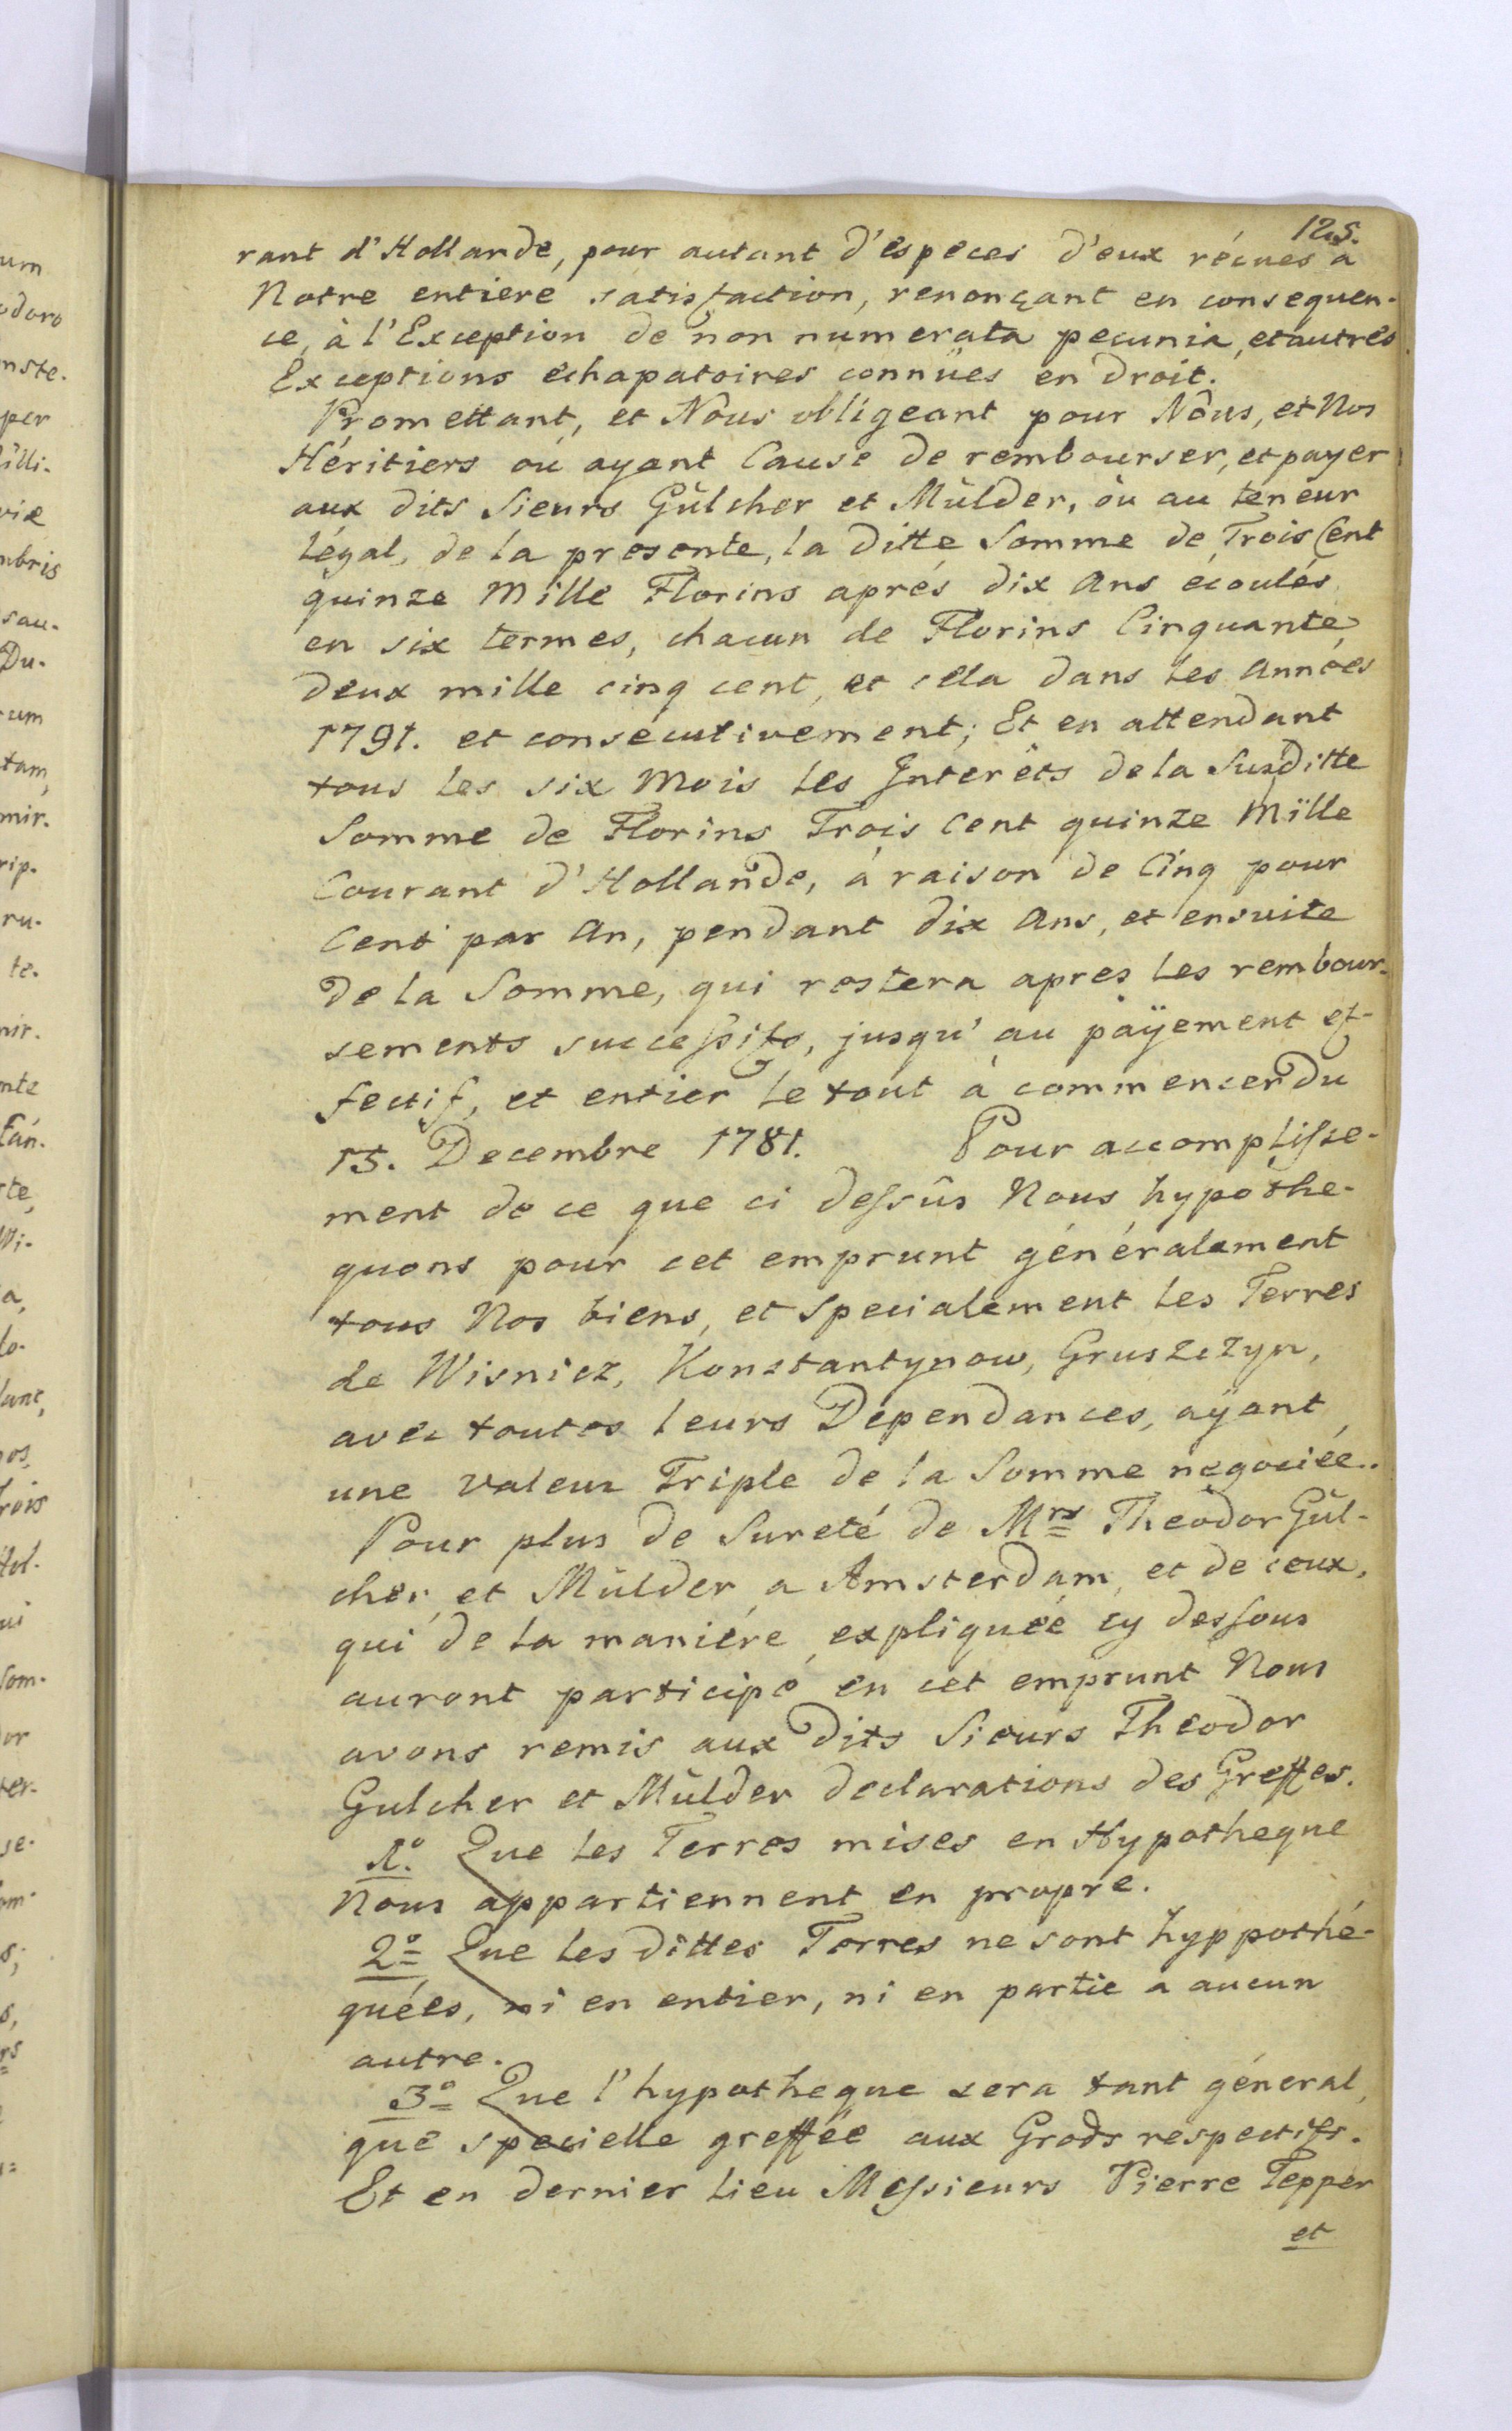 125.
rant d'Hollande, pour autant d'especes d'eux récues a
Notre entiere satisfaction, renonçant en consequen-
ce, à l'Exception de non numerata pecunia, et autres
Exceptions échapatoires connües en droit.
Promettant, et Nous obligeant pour Nôus, et Nos
Héritiers oú ayant Cause de rembourser, et payer
aux dits Sieurs Gülcher et Mülder, òu au teneur
légal, de la presente, la ditte Somme de Trois Cent
quinze Mille Florins aprés dix Ans écoulés
en six termes, chacun de Florins Cinquante
deux mille cinq cent, et cela dans les Années
1791. et consécutivement; Et en attendant
tous les six Mois les Interêts de la Susditte
Somme de Florins Trois Cent quinze Mille
Courant d'Hollande, á raison de Cinq pour
Cent par An, pendant dix Ans, et ensuite
de la Somme, qui restera apres les rembour-
sements succeſsifs, jusqu'au päyement ef-
fectif, et entier le tout à commencer du
15. Decembre 1781. Pour accompliſse-
ment de ce que ci deſsûs Nous hypothe-
quons pour cet emprunt généralement
tous Nos biens, et specialement les Terres
de Wisnicz, Konstantynow, Gruszczyn,
avec toutes leurs Dépendances, aÿant
une valeur Triple de la Somme negociée.
Pour plus de Sureté de Mrs Theodor Gül-
cher et Mülder a Amsterdam, et de ceux,
qui de la maniére expliquée cy desſous
auront participé en cet emprunt Nous
avons remis aux Dits Sieurs Theodor
Gulcher et Mülder declarations des Greffes.
1.º Que les Terres mises en Hypotheque
Nous appartiennent en propre.
2º Que les dittes Terres ne sont hyppothé-
quées, ni en entier, ni en partie a aucun
autre.
3º Que l'hypotheque sera tant géneral,
que specielle greffée aux Grods respectifs.
Et en dernier lieu Meſsieurs Pierre Tepper
et